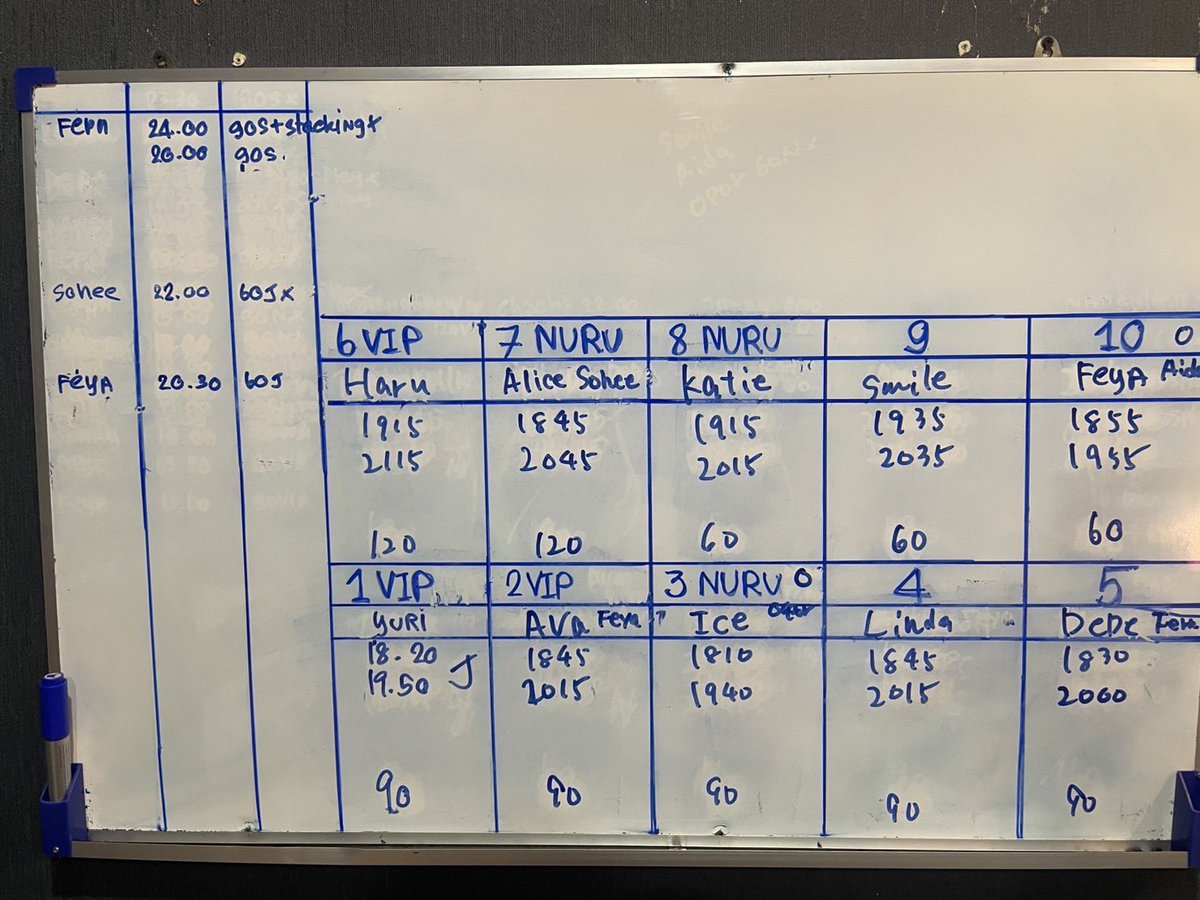 Fern 24.00 90S+stocking+
20.00 90S.
Sohee 22.00 60JX
FEYA 20.30 60J
6 VIP 7 NURU 8 NURU 9 10 O
Haru Alice Sohee Katie Smile FEYA Aida
1915 1845 1915 1935 1855
2115 2045 2015 2035 1955
120 120 60 60 60
1 VIP 2 VIP 3 NURU O 4 5
YURI AVA Fern Ice Linda DEDE Fern
18.20 J 1845 1810 1845 1830
19.50 2015 1940 2015 2000
90 90 90 90 90